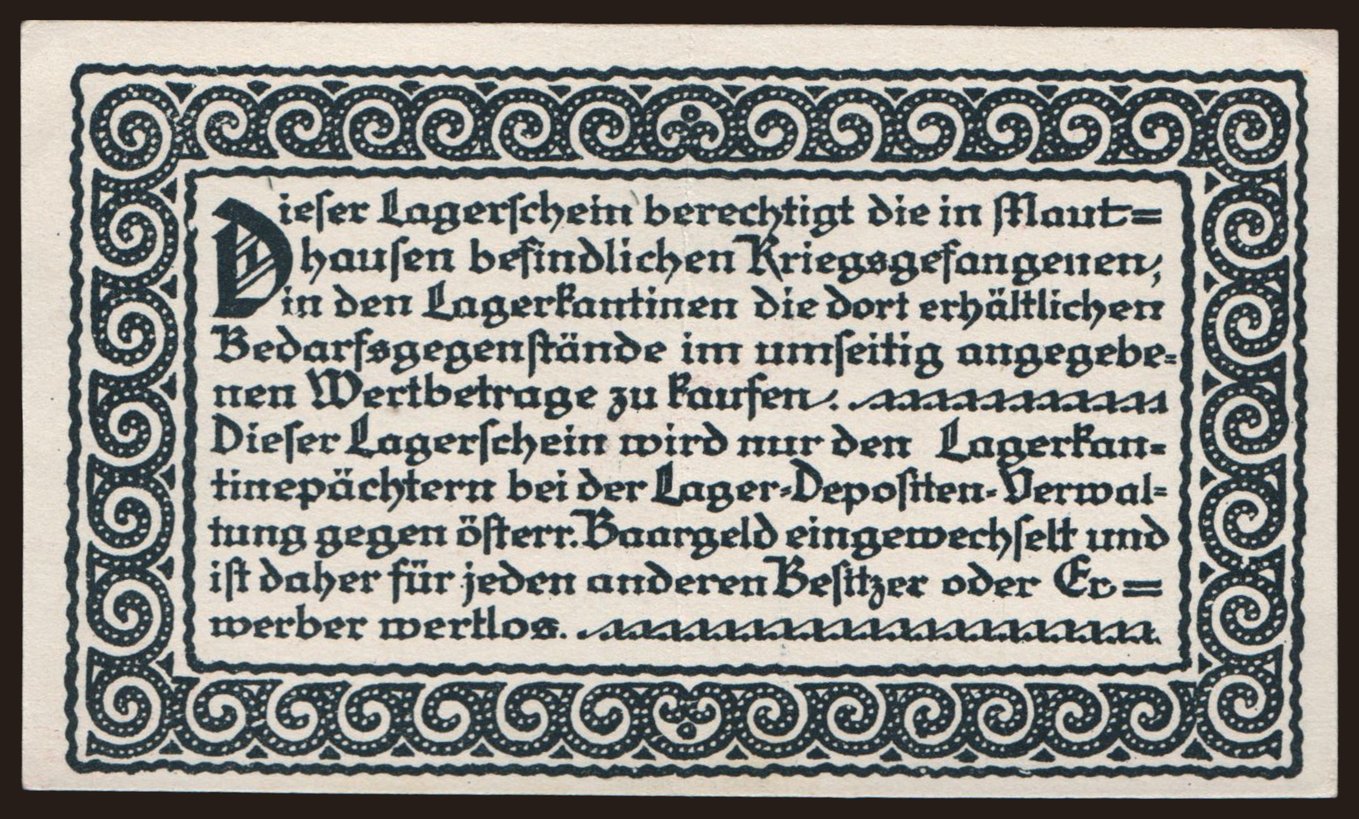 Dieser Lagerschein berechtigt die in Maut=
hausen befindlichen Kriegsgefangenen,
in den Lagerkantinen die dort erhältlichen
Bedarfsgegenstände im umseitig angegebe=
nen Wertbetrage zu kaufen.
Dieser Lagerschein wird nur den Lagerkan=
tinepächtern bei der Lager=Depositen=Verwal=
tung gegen österr. Baargeld eingewechselt und
ist daher für jeden anderen Besitzer oder Er=
werber wertlos.